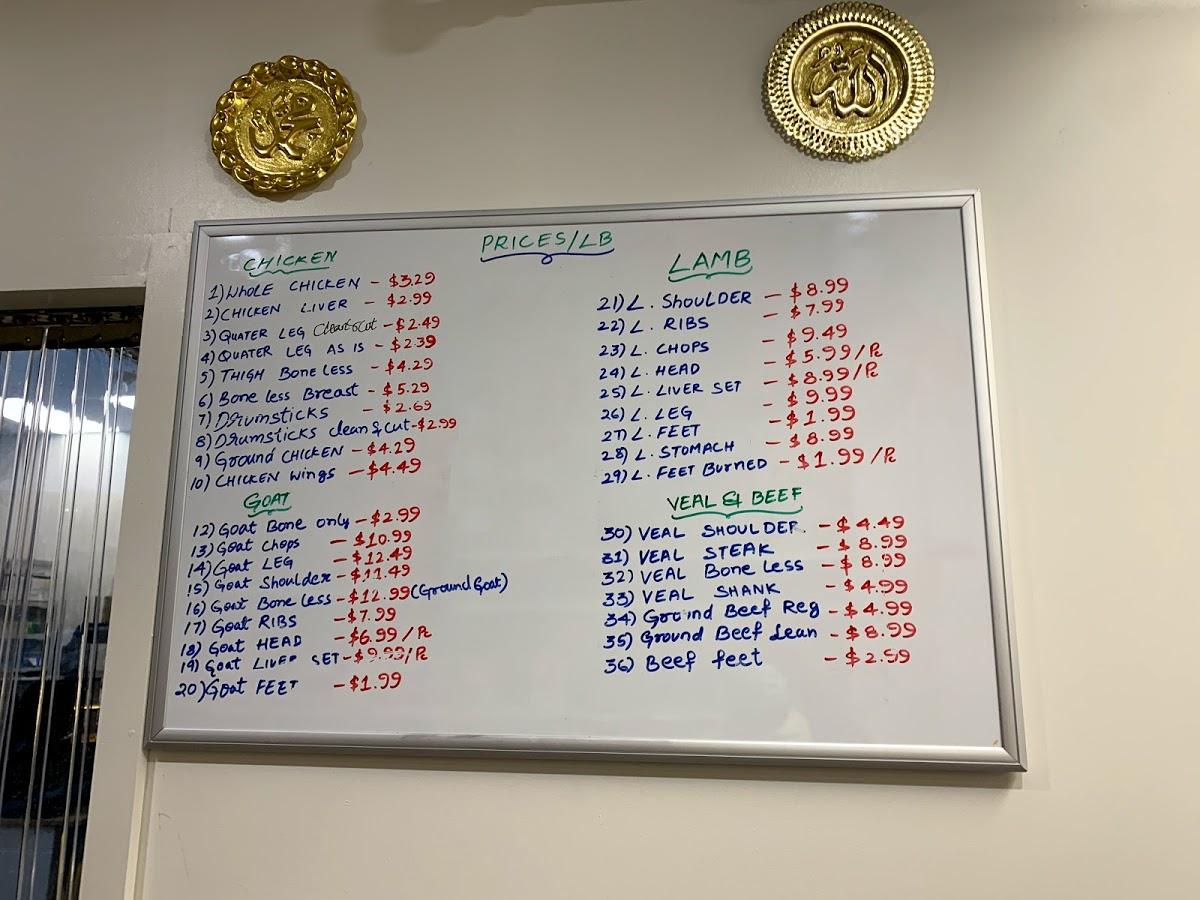 محمد
الله
PRICES/LB
CHICKEN
1) WHOLE CHICKEN - $3.29
2) CHICKEN LIVER - $2.99
3) QUATER LEG Clean & Cut - $2.49
4) QUATER LEG AS IS - $2.39
5) THIGH Bone Less - $4.29
6) Bone less Breast - $5.29
7) Drumsticks - $2.69
8) Drumsticks clean & cut - $2.99
9) Ground CHICKEN - $4.29
10) CHICKEN Wings - $4.49
GOAT
12) Goat Bone only - $2.99
13) Goat Chops - $10.99
14) Goat LEG - $12.49
15) Goat Shoulder - $11.49
16) Goat Bone Less - $12.99 (Ground Goat)
17) Goat RIBS - $7.99
18) Goat HEAD - $6.99/Pc
19) Goat LIVER SET - $9.99/Pc
20) Goat FEET - $1.99
LAMB
21) L. SHOULDER - $8.99
22) L. RIBS - $7.99
23) L. CHOPS - $9.49
24) L. HEAD - $5.99/Pc
25) L. LIVER SET - $8.99/Pc
26) L. LEG - $9.99
27) L. FEET - $1.99
28) L. STOMACH - $8.99
29) L. FEET BURNED - $1.99/Pc
VEAL & BEEF
30) VEAL SHOULDER - $4.49
31) VEAL STEAK - $8.99
32) VEAL Bone Less - $8.99
33) VEAL SHANK - $4.99
34) Ground Beef Reg - $4.99
35) Ground Beef Lean - $8.99
36) Beef feet - $2.59